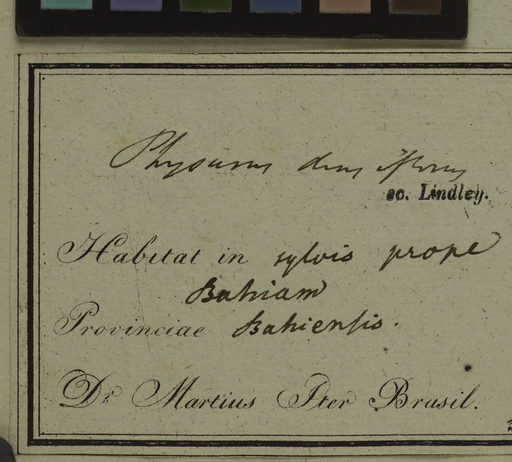 Physurus densiflorus
sc. Lindley.
Habitat in sylvis prope
Bahiam
Provinciae Bahiensis.
Dr. Martius Iter Brasil.